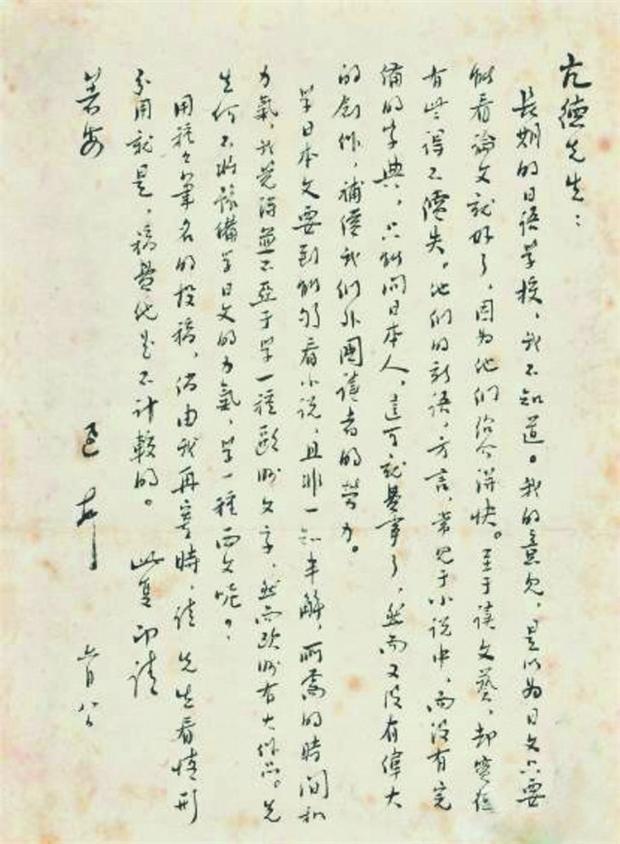 亢德先生：
長期的日語學校，我不知道。我的意見，是以为日文只要
能看論文就好了，因为他们绍介得快。至于读文藝，却實在
有些得不償失。他们的新语，方言，常見于小说中，而沒有完
備的字典，只能问日本人，這可就費事了，然而又沒有偉大
的創作，補償我们外國讀者的勞力。
学日本文要到能夠看小说，且非一知半解，所需的時间和
力氣，我觉得並不亞于学一種歐洲文字，然而欧洲有大作品。先
生何不将豫備学日文的力氣，学一種西文呢？
用種々筆名的投稿，倘由我再寄時，请先生看情形
分用就是，稿費他是不计較的。 此复即請
著安
迅 六月八日